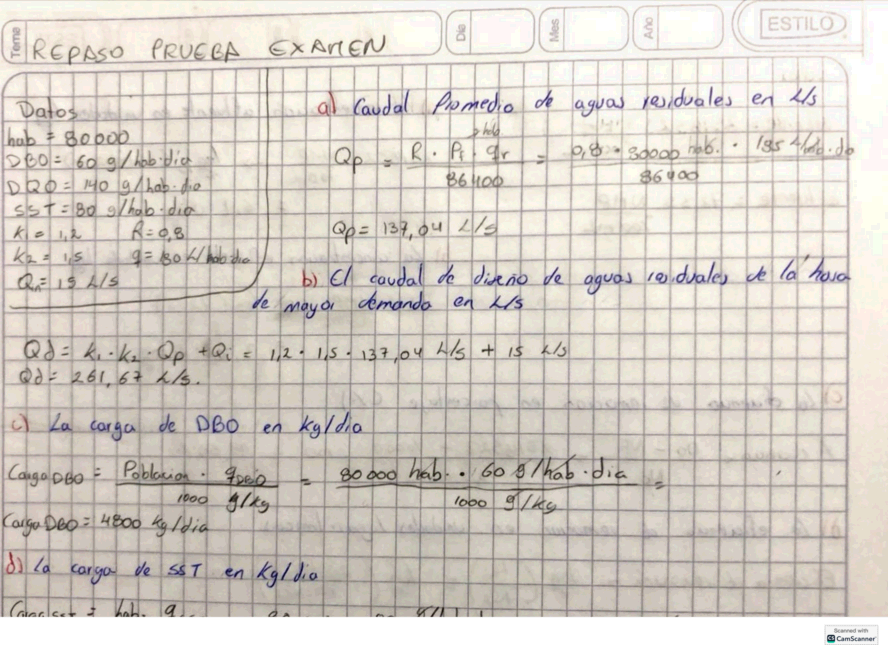 Tema
REPASO PRUEBA EXAMEN
Dia
Mes
Año
ESTILO
Datos
hab = 80000
DBO = 60 g/hab·dia
DQO = 140 g/hab·dia
SST = 80 g/hab·dia
K1 = 1,2 R = 0,8
K2 = 1,5 q = L/hab·dia
= 15 L/s
a) Caudal Promedio de aguas residuales en L/s
hab
Qp = R · Pf · qr / 86400 = 0,8 · 80000 hab. · 185 L/hab·do / 86400
Qp = 137,04 L/s
b) El caudal de diseño de aguas residuales de la hora
de mayor demanda en L/s
Qd = K1 · K2 · Qp + Qi = 1,2 · 1,5 · 137,04 L/s + 15 L/s
Qd = 261,67 L/s.
c) La carga de DBO en kg/dia
Carga DBO = Poblacion · qDBO / 1000 g/kg = 80000 hab. · 60 g/hab·dia / 1000 g/kg =
Carga DBO = 4800 kg/dia
d) La carga de SST en Kg/dia
Carga SST = hab.
Scanned with
CS CamScanner